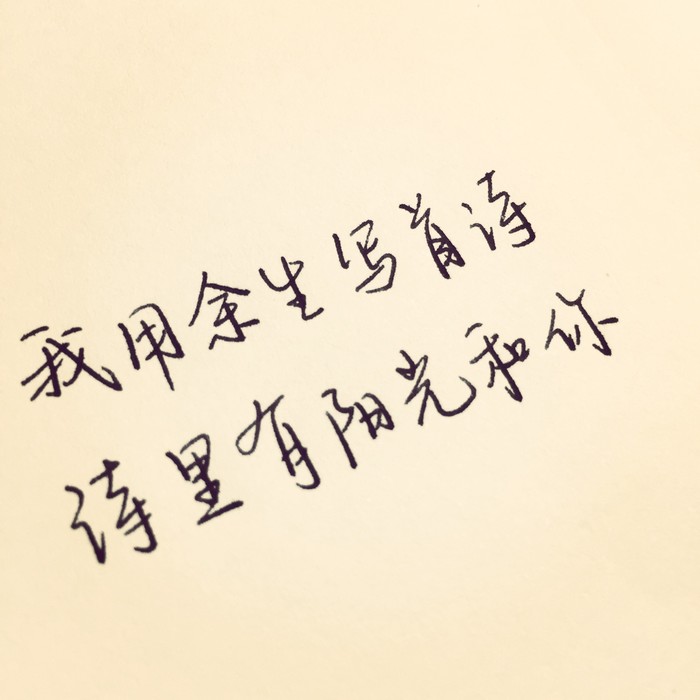 我用余生写首诗
诗里有阳光和你